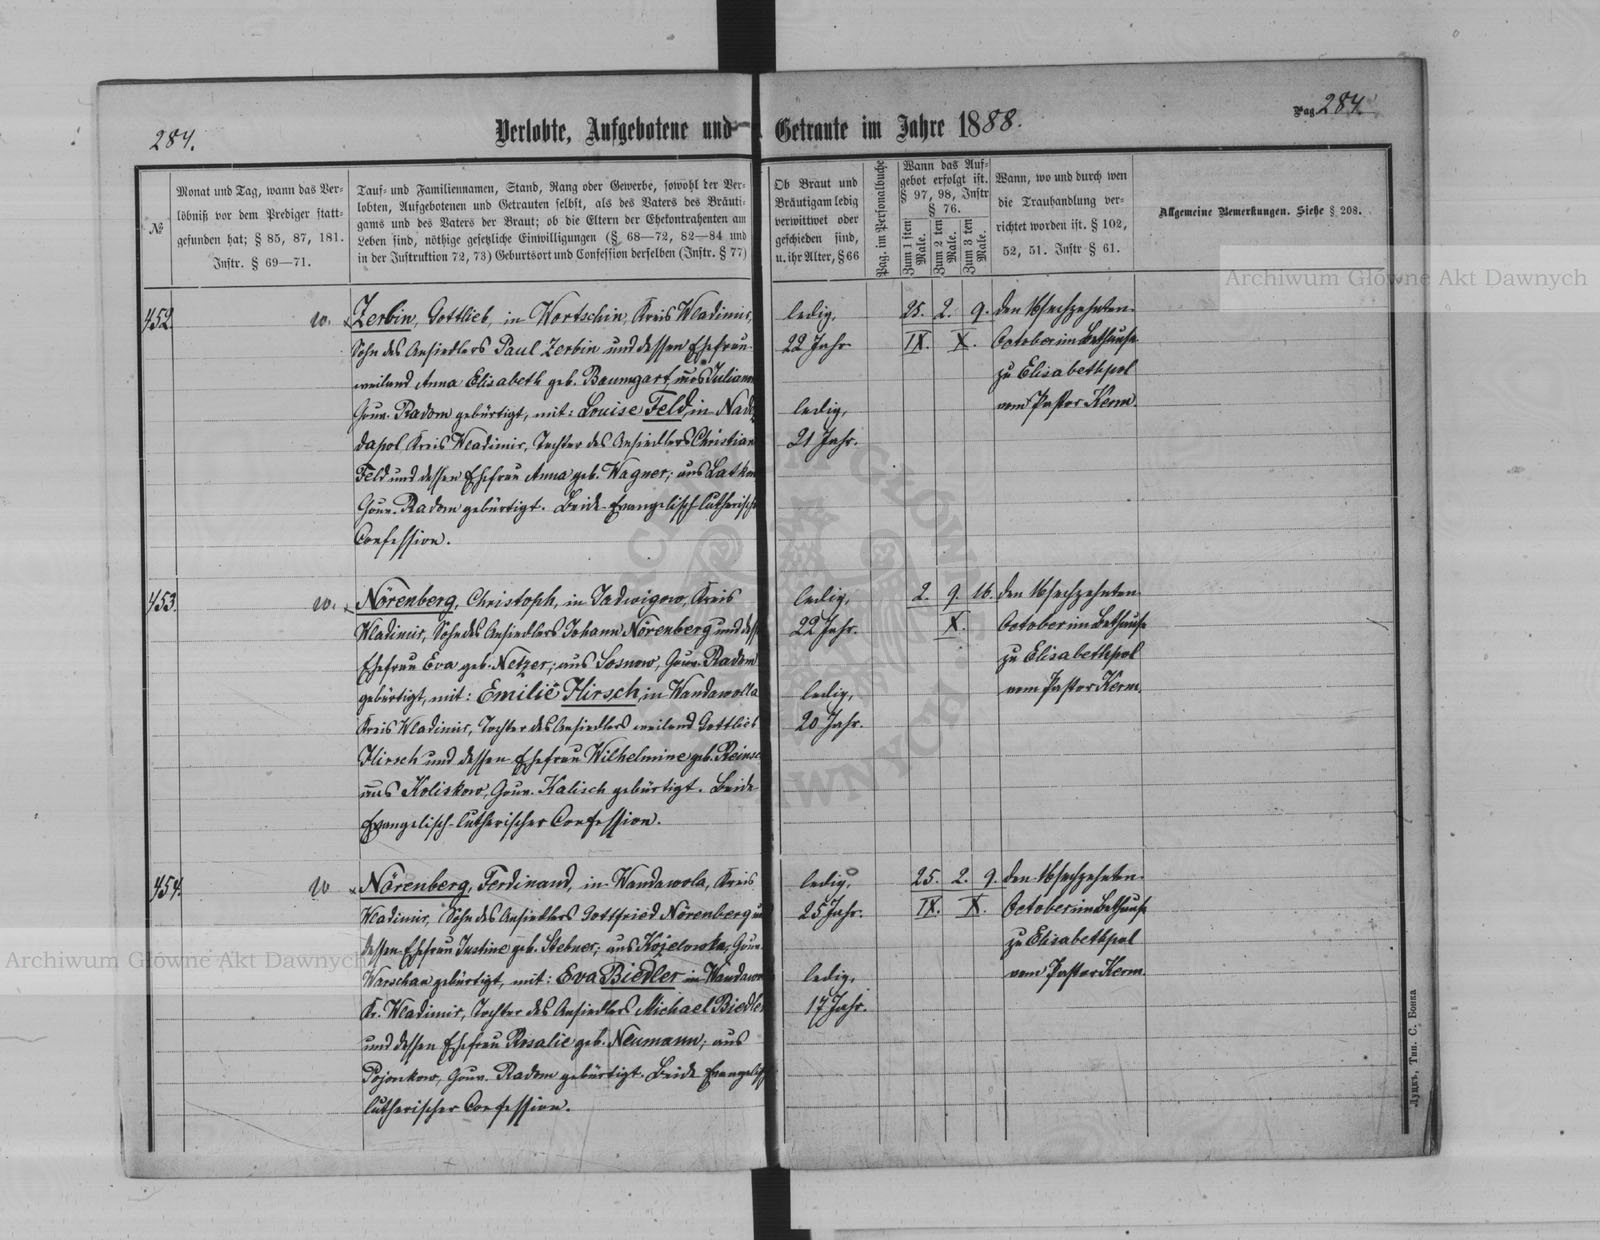 284.
Verlobte, Aufgebotene und Getraute im Jahre 1888.
Pag. 284.
№
Monat und Tag, wann das Ver-
löbniß vor dem Prediger statt-
gefunden hat; § 85, 87, 181.
Instr. § 69—71.
Tauf- und Familiennamen, Stand, Rang oder Gewerbe, sowohl der Ver-
lobten, Aufgebotenen und Getrauten selbst, als des Vaters des Bräuti-
gams und des Vaters der Braut; ob die Eltern der Ehekontrahenten am
Leben sind, nöthige gesetzliche Einwilligungen (§ 68—72, 82—84 und
in der Instruktion 72, 73) Geburtsort und Confession derselben (Instr. § 77)
Ob Braut und
Bräutigam ledig
verwittwet oder
geschieden sind,
u. ihr Alter, § 66
Pag. im Personalbuche
Wann das Auf-
gebot erfolgt ist.
§ 97, 98, Instr
§ 76.
Zum 1 sten Male.
Zum 2 ten Male.
Zum 3 ten Male.
Wann, wo und durch wen
die Trauhandlung ver-
richtet worden ist. § 102,
52, 51. Instr § 61.
Allgemeine Bemerkungen. Siehe § 208.
452.
w.
Zerbin, Gottlieb, in Wortschin, Kreis Wladimir,
Sohn des Ansiedlers Paul Zerbin und dessen Ehefrau
weiland Anna Elisabeth geb. Baumgart, aus Juliano
Gouv. Radom gebürtigt, mit: Louise Feld, in Nad
dapol Kreis Wladimir, Tochter des Ansiedlers Christian
Feld und dessen Ehefrau Anna geb. Wagner; aus Latkow
Gouv. Radom gebürtigt. Beide Evangelisch-lutherische
Confession.
ledig,
22 Jahr.
ledig,
21 Jahr.
25. 2. 9.
IX. X.
den 16 sechzehnten
October im Bethause
zu Elisabethpol
vom Pastor Kerm.
453.
w.
Nörenberg, Christoph, in Jadwigow, Kreis
Wladimir, Sohn des Ansiedlers Johann Nörenberg und dess
Ehefrau Eva geb. Netzer; aus Sosnow, Gouv. Radom
gebürtigt, mit: Emilie Hirsch, in Wandawolla
Kreis Wladimir, Tochter des Ansiedlers weiland Gottlieb
Hirsch und dessen Ehefrau Wilhelmine geb. Reinsc
aus Koliskow, Gouv. Kalisch gebürtigt. Beide
Evangelisch-lutherischer Confession.
ledig,
22 Jahr.
ledig,
20 Jahr.
2. 9. 16.
X.
den 16 sechzehnten
October im Bethause
zu Elisabethpol
vom Pastor Kerm.
454.
w
Nörenberg, Ferdinand, in Wandawola, Kreis
Wladimir, Sohn des Ansiedlers Gottfried Nörenberg u
dessen Ehefrau Justine geb. Stebner; aus Kozelowka, Gouv.
Warschau gebürtigt, mit: Eva Biedler in Wandawo
Kr. Wladimir, Tochter des Ansiedlers Michael Biedle
und dessen Ehefrau Rosalie geb. Neumann; aus
Pojonkow, Gouv. Radom gebürtigt. Beide Evangelisch
lutherischer Confession.
ledig,
25 Jahr.
ledig,
17 Jahr.
25. 2. 9.
IX. X.
den 16 sechzehnten
October im Bethause
zu Elisabethpol
vom Pastor Kerm
Луцкъ, Тип. С. Бонка
Archiwum Główne Akt Dawnych
Archiwum Główne Akt Dawnych